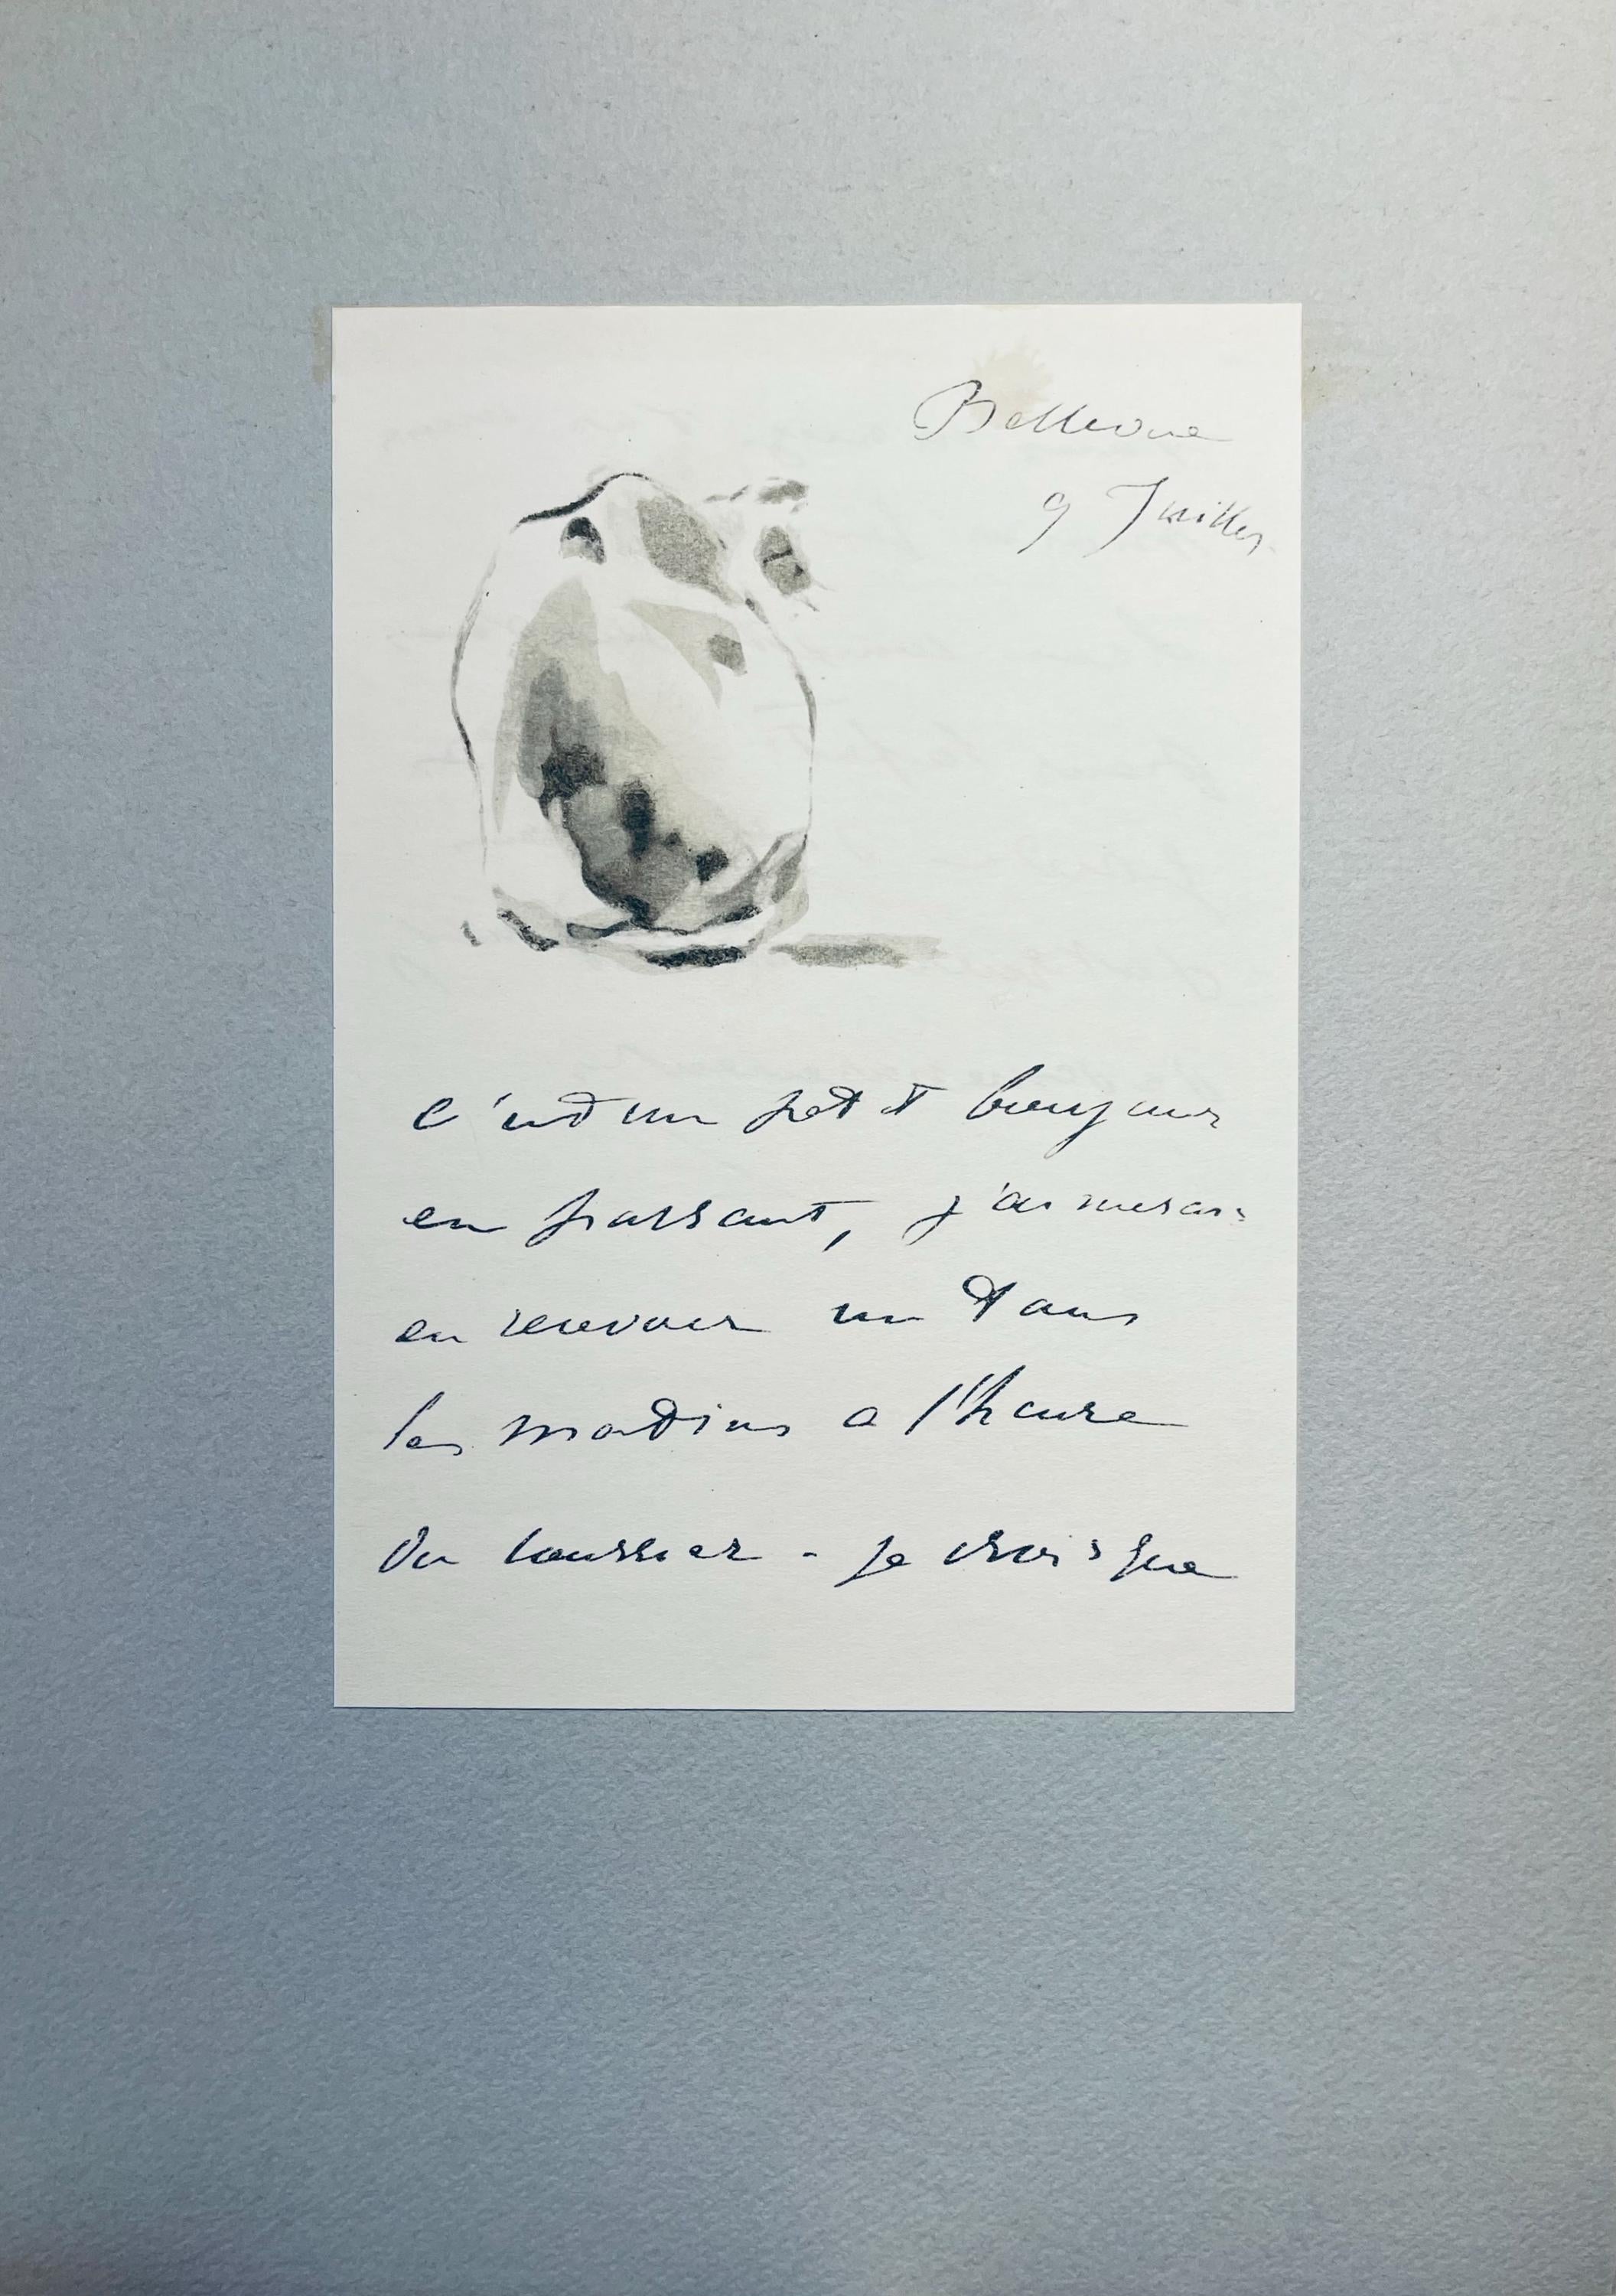 Bellevue
9 Juillet
c'est un petit bonjour
en passant, j'aimerai
en recevoir un tous
les matins a l'heure
du courrier - je crois que